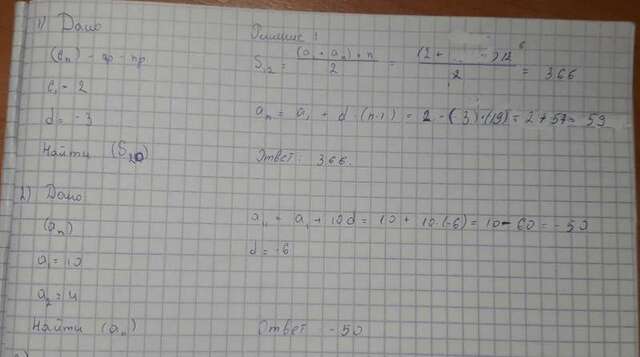 1) Дано
(cₙ) - ар - пр.
c₁ = 2
d = - 3
Найти (S₂₀)
Решение:
S₁₂ = (a₁ + aₙ) · n / 2 = (2 + - ) 12 ⁶ / 2 = 366
aₙ = a₁ + d · (n-1) = 2 - (-3) · (19) = 2 + 57 = 59
Ответ: 366.
2) Дано
(aₙ)
a₁ = 10
a₂ = 4
Найти (aₙ)
a₁₁ = a₁ + 10d = 10 + 10 · (-6) = 10 - 60 = - 50
d = -6
Ответ - 50